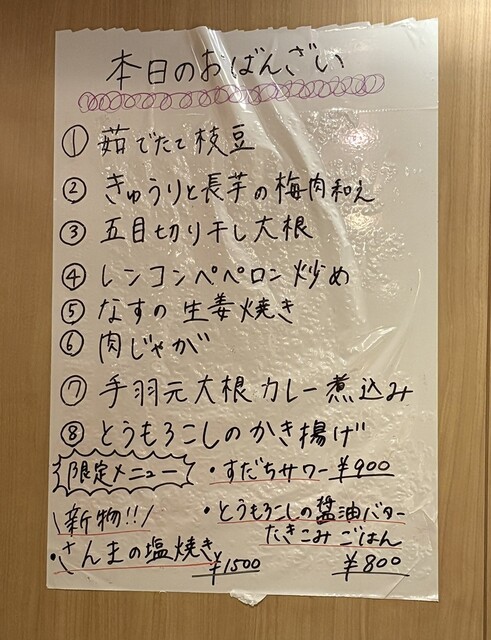 本日のおばんざい
① 茹でたて枝豆
② きゅうりと長芋の梅肉和え
③ 五目切り干し大根
④ レンコンペペロン炒め
⑤ なすの生姜焼き
⑥ 肉じゃが
⑦ 手羽元大根カレー煮込み
⑧ とうもろこしのかき揚げ
限定メニュー
・すだちサワー ¥900
\新物!!/
・さんまの塩焼き
¥1500
・とうもろこしの醤油バター
たきこみごはん
¥800